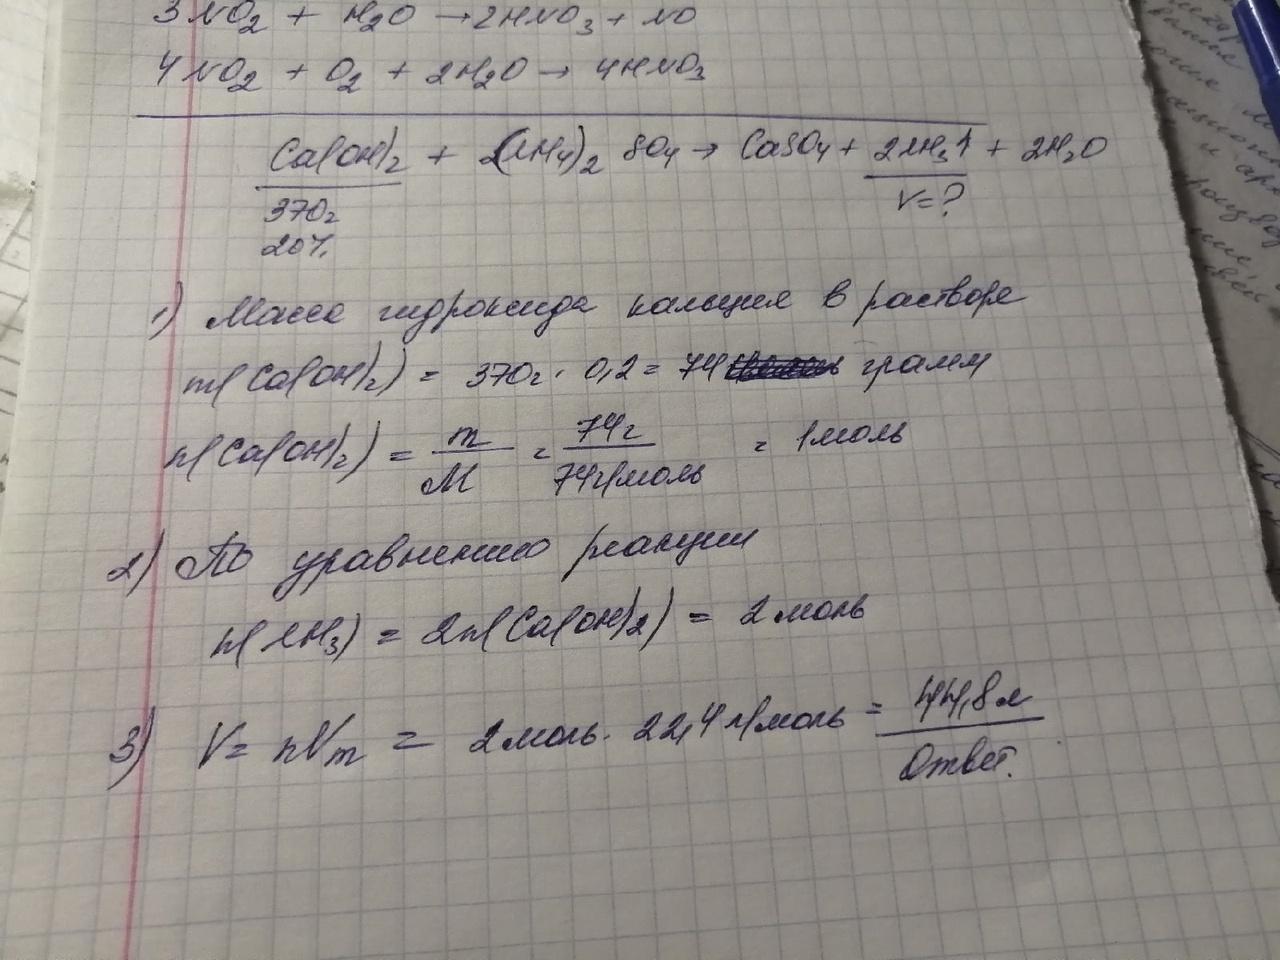 3NO₂ + H₂O → 2HNO₃ + NO
4NO₂ + O₂ + 2H₂O → 4HNO₃
Ca(OH)₂ + (NH₄)₂SO₄ → CaSO₄ + 2NH₃↑ + 2H₂O
370г V=?
20%
1) Масса гидроксида кальция в растворе
m(Ca(OH)₂) = 370г · 0,2 = 74 грамм
n(Ca(OH)₂) = m/M = 74г/74г/моль = 1моль
2) По уравнению реакции
n(NH₃) = 2n(Ca(OH)₂) = 2моль
3) V = nVm = 2моль · 22,4л/моль = 44,8л
Ответ.